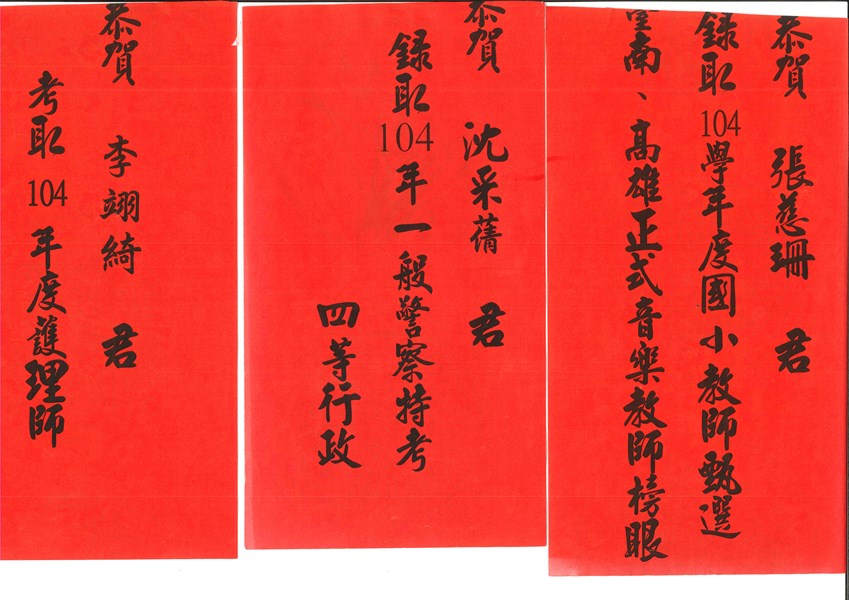 恭賀 張慈珊 君
錄取104學年度國小教師甄選
臺南、高雄正式音樂教師榜眼
恭賀 沈采蒨 君
錄取104年一般警察特考
四等行政
恭賀 李翊綺 君
考取104年度護理師